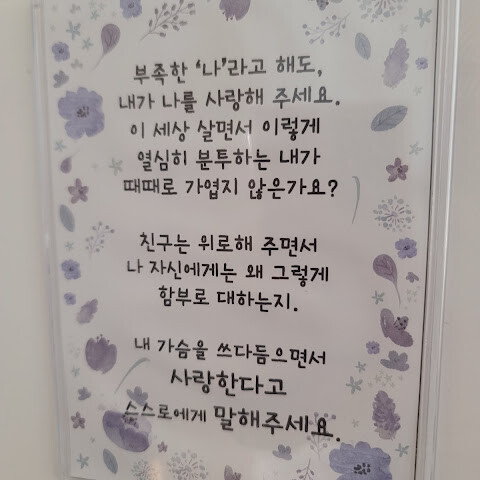 부족한 '나'라고 해도,
내가 나를 사랑해 주세요.
이 세상 살면서 이렇게
열심히 분투하는 내가
때때로 가엽지 않은가요?
친구는 위로해 주면서
나 자신에게는 왜 그렇게
함부로 대하는지.
내 가슴을 쓰다듬으면서
사랑한다고
스스로에게 말해주세요.